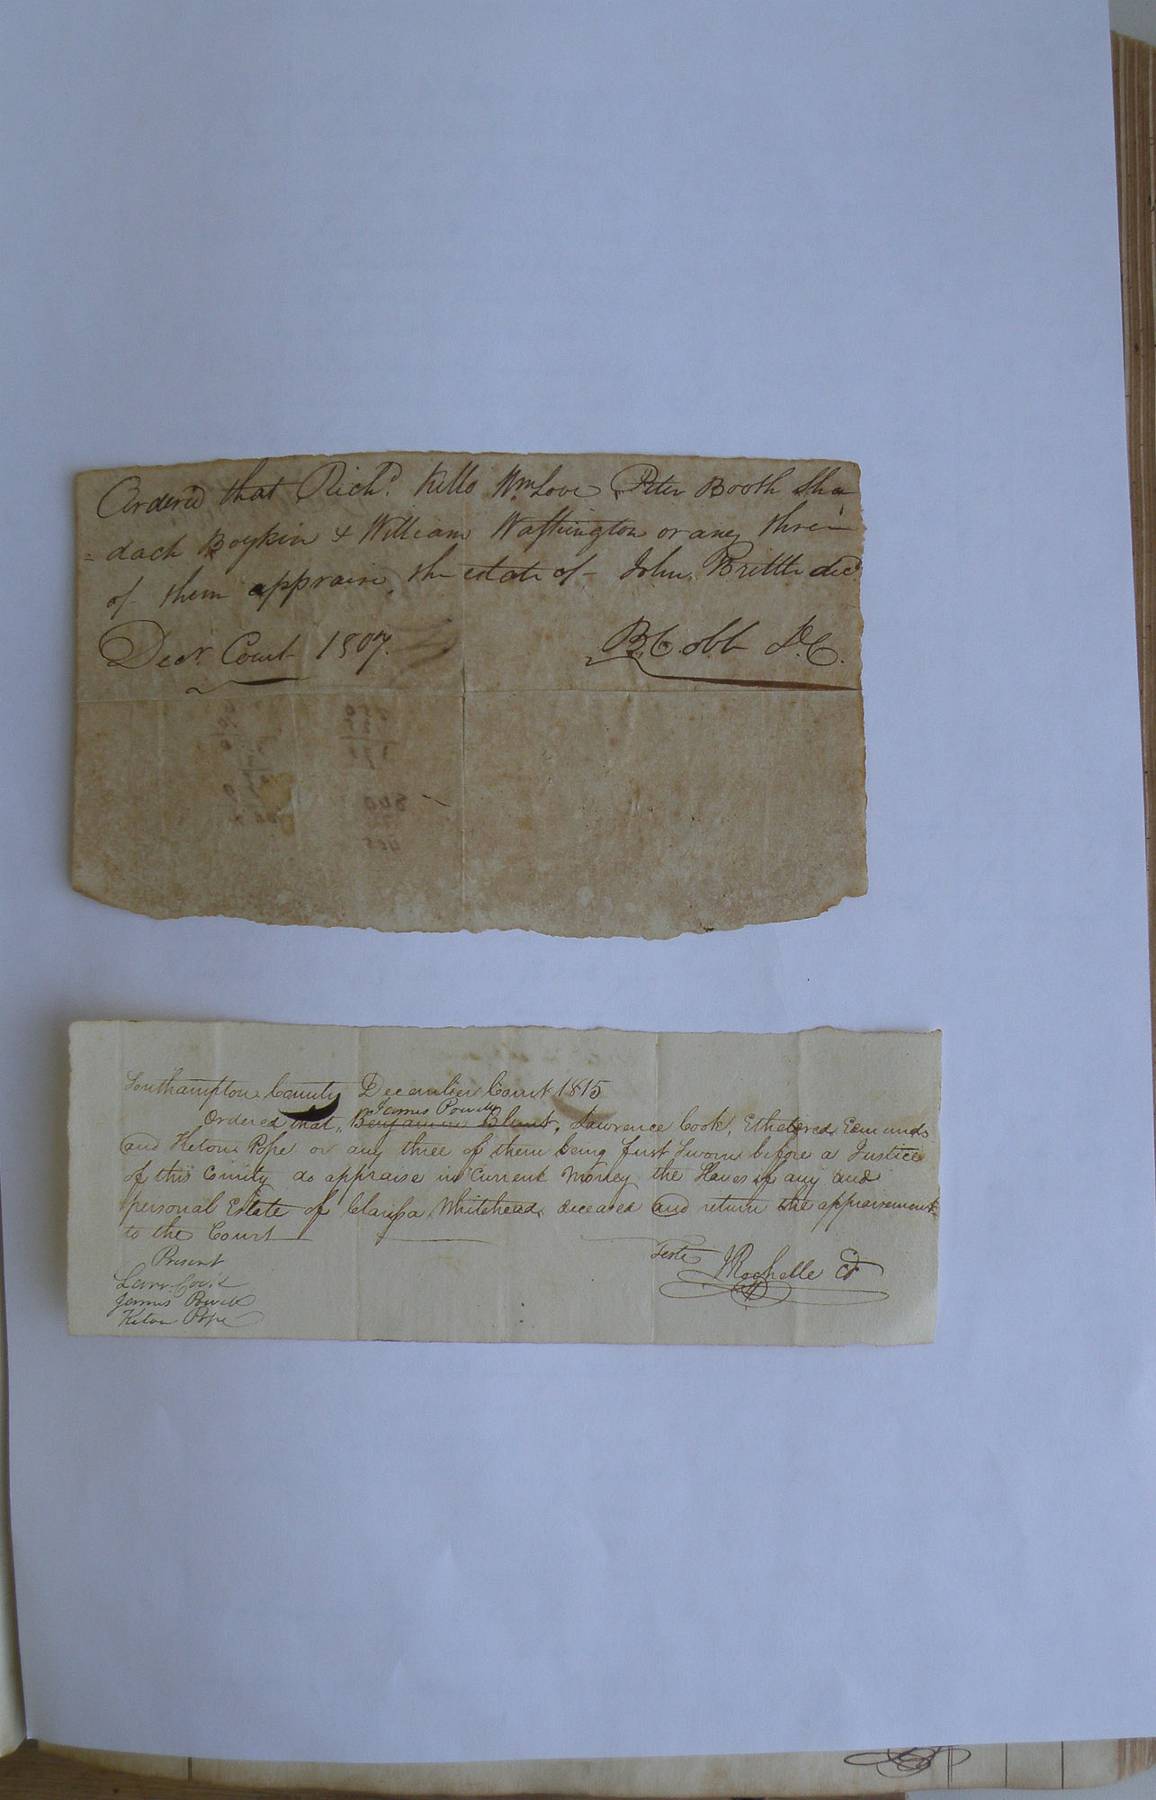 Ordered that Richd. Kello Wm Love Peter Booth Sha
= dach Boykin & William Washington or any three
of them appraise the estate of John Brittle decd.
Decr. Court 1807.
B. Cobb D.C.
Southampton County December Court 1815
James Powell
Ordered that, Benjamin Blunt, Lawrence Cook, Etheldred Edmunds
and Keton Pope or any three of them being first Sworn before a Justice
of this County do appraise in Current Money the Slaves if any and
personal Estate of Clarissa Whitehead deceased and return the appraisement
to the Court
Teste
JRochelle
Present
Lawr. Cook
James Powell
Keton Pope